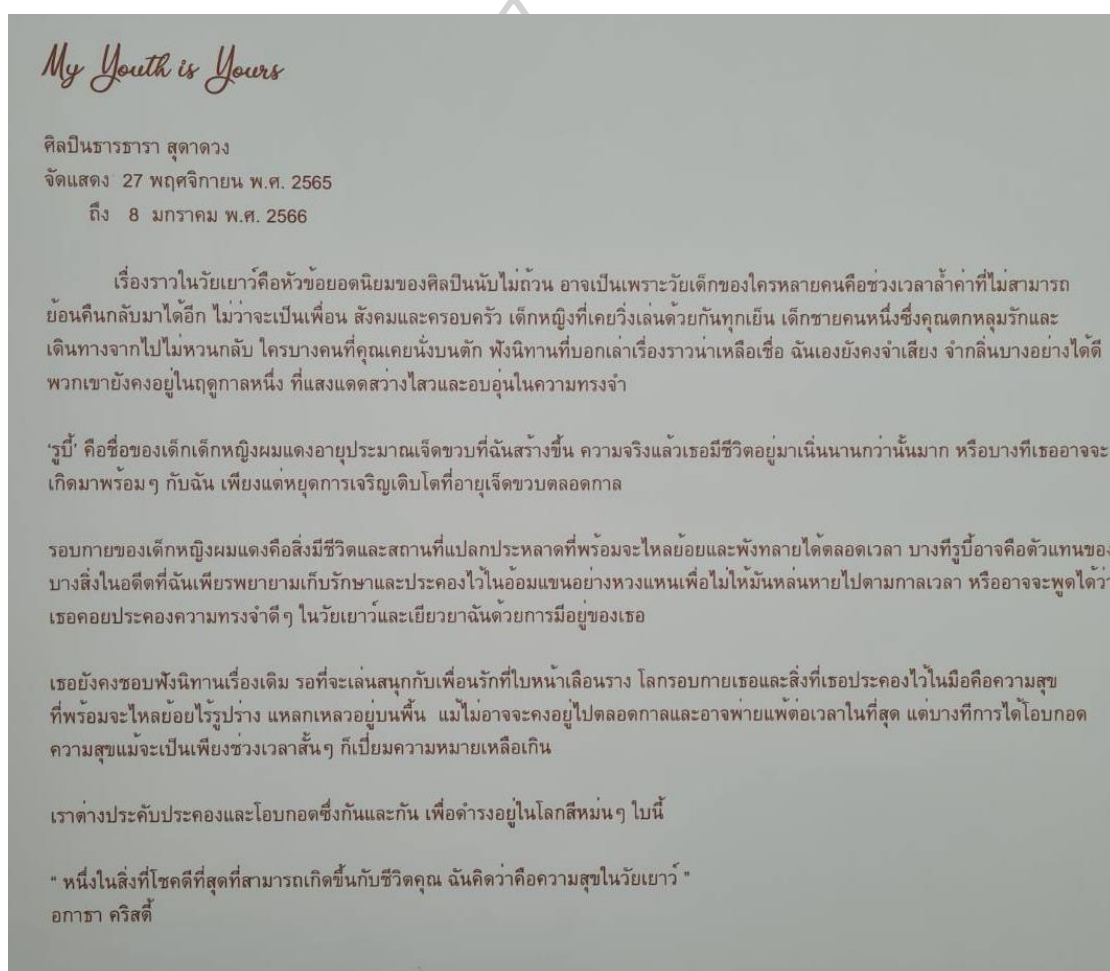 My Youth is Yours
ศิลปินธารธารา สุดาดวง
จัดแสดง 27 พฤศจิกายน พ.ศ. 2565
ถึง 8 มกราคม พ.ศ. 2566
เรื่องราวในวัยเยาว์คือหัวข้อยอดนิยมของศิลปินนับไม่ถ้วน อาจเป็นเพราะวัยเด็กของใครหลายคนคือช่วงเวลาล้ำค่าที่ไม่สามารถ
ย้อนคืนกลับมาได้อีก ไม่ว่าจะเป็นเพื่อน สังคมและครอบครัว เด็กหญิงที่เคยวิ่งเล่นด้วยกันทุกเย็น เด็กชายคนหนึ่งซึ่งคุณตกหลุมรักและ
เดินทางจากไปไม่หวนกลับ ใครบางคนที่คุณเคยนั่งบนตัก ฟังนิทานที่บอกเล่าเรื่องราวน่าเหลือเชื่อ ฉันเองยังคงจำเสียง จำกลิ่นบางอย่างได้ดี
พวกเขายังคงอยู่ในฤดูกาลหนึ่ง ที่แสงแดดสว่างไสวและอบอุ่นในความทรงจำ
'รูบี้' คือชื่อของเด็กเด็กหญิงผมแดงอายุประมาณเจ็ดขวบที่ฉันสร้างขึ้น ความจริงแล้วเธอมีชีวิตอยู่มาเนิ่นนานกว่านั้นมาก หรือบางทีเธออาจจะ
เกิดมาพร้อมๆ กับฉัน เพียงแต่หยุดการเจริญเติบโตที่อายุเจ็ดขวบตลอดกาล
รอบกายของเด็กหญิงผมแดงคือสิ่งมีชีวิตและสถานที่แปลกประหลาดที่พร้อมจะไหลย้อยและพังทลายได้ตลอดเวลา บางทีรูบี้อาจคือตัวแทนของ
บางสิ่งในอดีตที่ฉันเพียรพยายามเก็บรักษาและประคองไว้ในอ้อมแขนอย่างหวงแหนเพื่อไม่ให้มันหล่นหายไปตามกาลเวลา หรืออาจจะพูดได้ว่า
เธอคอยประคองความทรงจำดีๆ ในวัยเยาว์และเยียวยาฉันด้วยการมีอยู่ของเธอ
เธอยังคงชอบฟังนิทานเรื่องเดิม รอที่จะเล่นสนุกกับเพื่อนรักที่ใบหน้าเลือนราง โลกรอบกายเธอและสิ่งที่เธอประคองไว้ในมือคือความสุข
ที่พร้อมจะไหลย้อยไร้รูปร่าง แหลกเหลวอยู่บนพื้น แม้ไม่อาจจะคงอยู่ไปตลอดกาลและอาจพ่ายแพ้ต่อเวลาในที่สุด แต่บางทีการได้โอบกอด
ความสุขแม้จะเป็นเพียงช่วงเวลาสั้นๆ ก็เปี่ยมความหมายเหลือเกิน
เราต่างประคับประคองและโอบกอดซึ่งกันและกัน เพื่อดำรงอยู่ในโลกสีหม่นๆ ใบนี้
" หนึ่งในสิ่งที่โชคดีที่สุดที่สามารถเกิดขึ้นกับชีวิตคุณ ฉันคิดว่าคือความสุขในวัยเยาว์ "
อกาธา คริสตี้